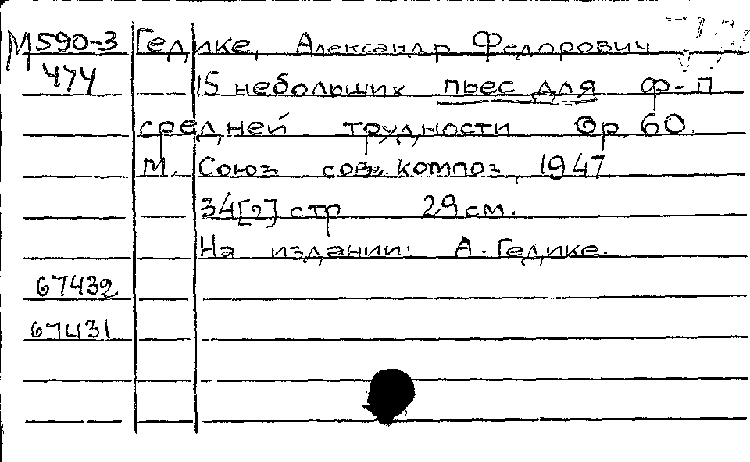 М590-3 Гедике, Александр Федорович
474 15 небольших пьес для ф-п
средней трудности Ор. 60.
М. Союз сов. композ. 1947
34[2] стр 29 см.
На издании: А. Гедике.
67432
67431